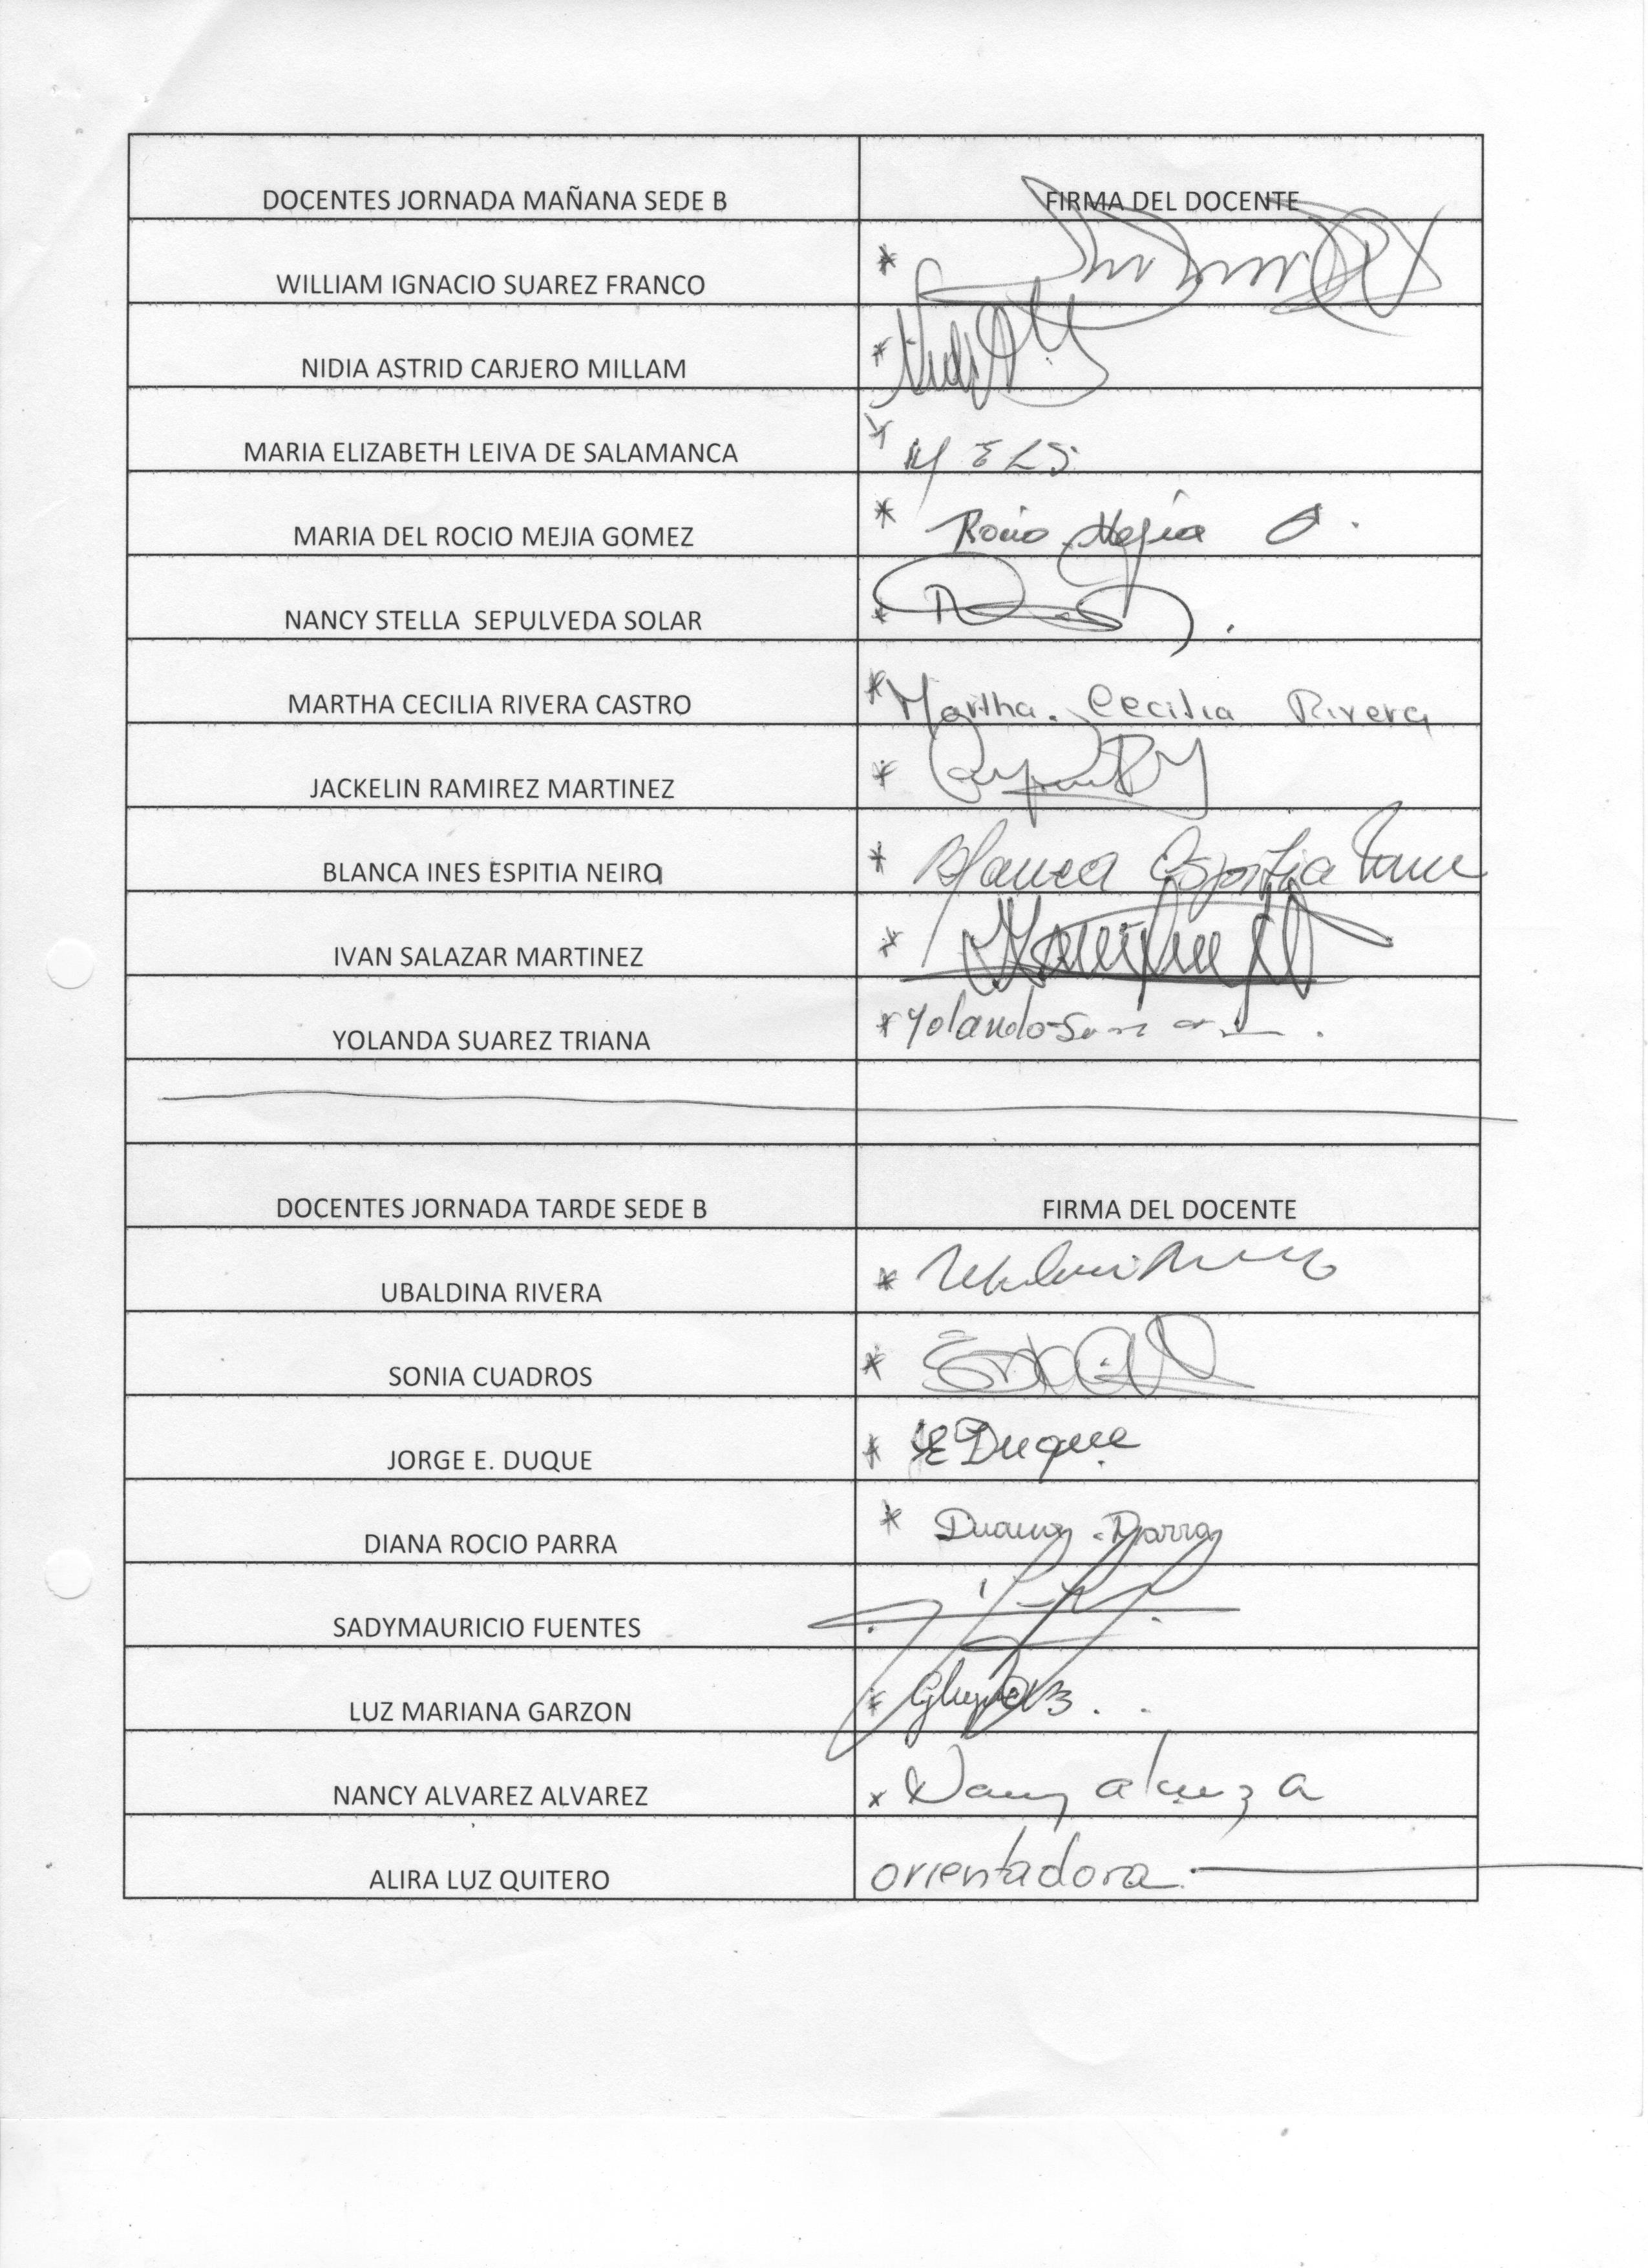 DOCENTES JORNADA MAÑANA SEDE B FIRMA DEL DOCENTE
WILLIAM IGNACIO SUAREZ FRANCO *
NIDIA ASTRID CARJERO MILLAM *
MARIA ELIZABETH LEIVA DE SALAMANCA M E L S.
MARIA DEL ROCIO MEJIA GOMEZ * Rocio Mejia G.
NANCY STELLA SEPULVEDA SOLAR *
MARTHA CECILIA RIVERA CASTRO * Martha. Cecilia Rivera
JACKELIN RAMIREZ MARTINEZ *
BLANCA INES ESPITIA NEIRO * Blanca Espitia
IVAN SALAZAR MARTINEZ *
YOLANDA SUAREZ TRIANA * Yolanda
DOCENTES JORNADA TARDE SEDE B FIRMA DEL DOCENTE
UBALDINA RIVERA *
SONIA CUADROS *
JORGE E. DUQUE * JE Duque
DIANA ROCIO PARRA * Diana Parra
SADYMAURICIO FUENTES
LUZ MARIANA GARZON *
NANCY ALVAREZ ALVAREZ * Nancy
ALIRA LUZ QUITERO orientadora